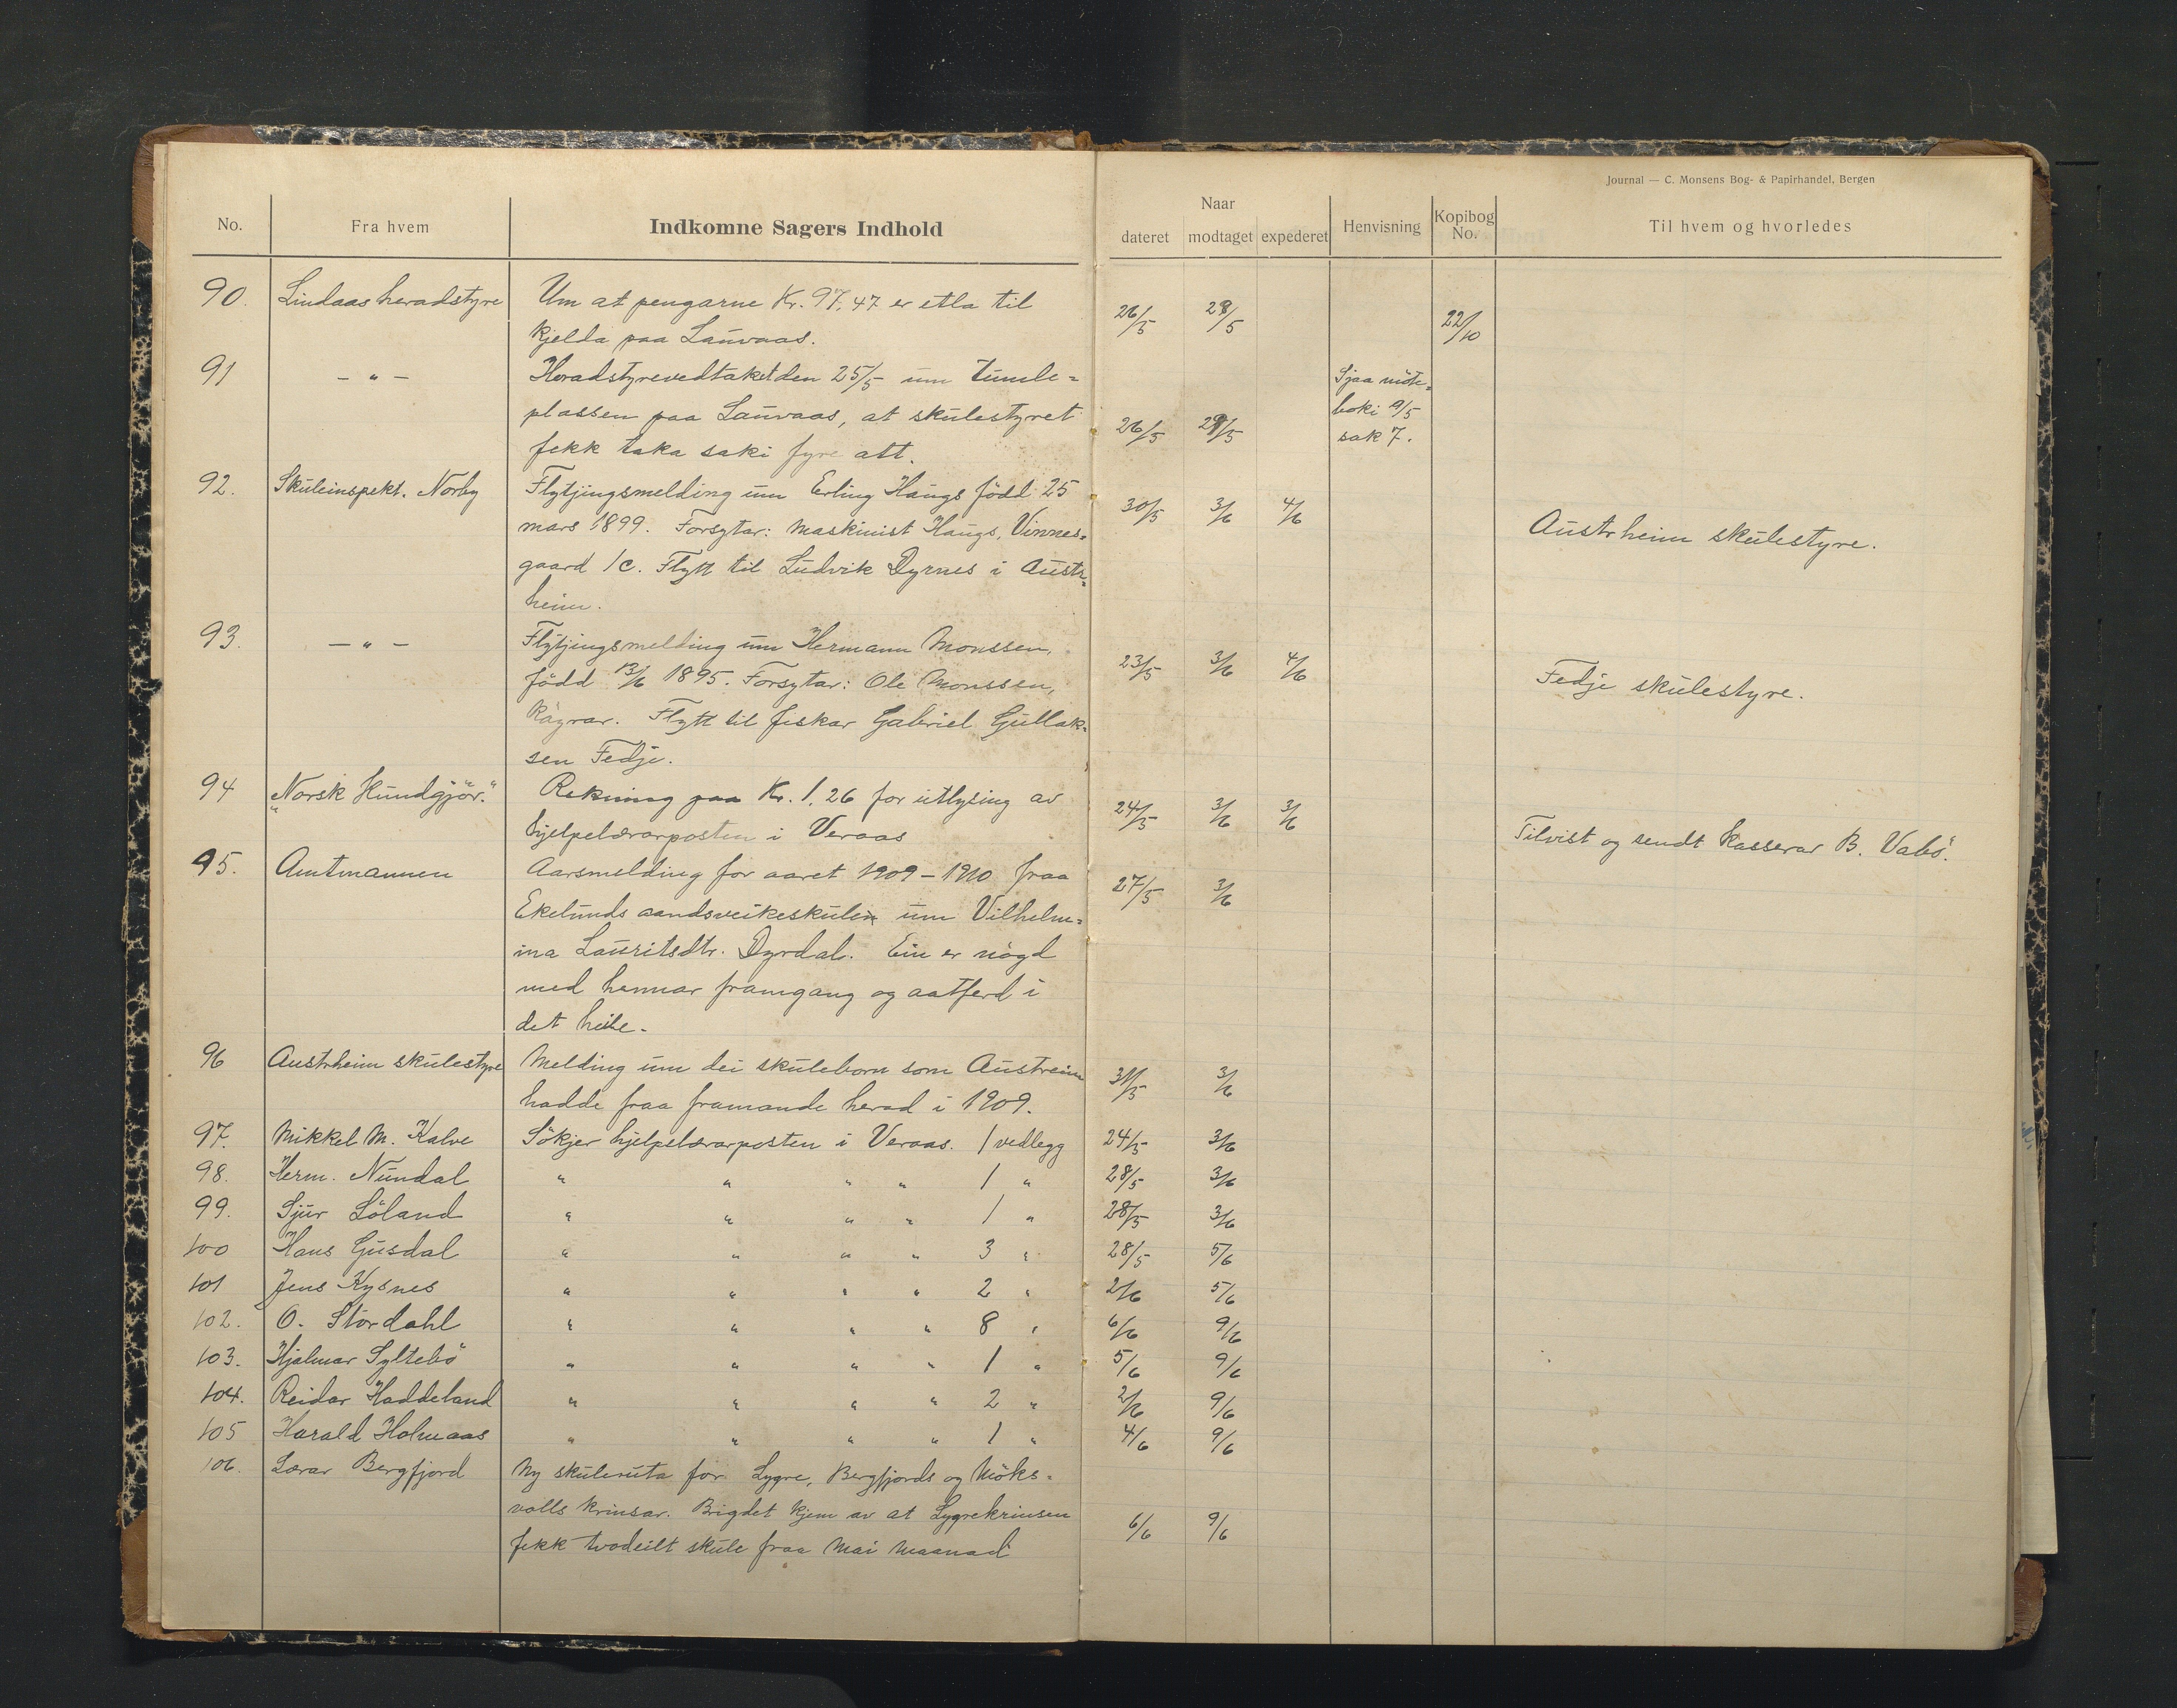 Journal — C. Monsens Bog- & Papirhandel, Bergen
No. Fra hvem Indkomne Sagers Indhold Naar dateret modtaget expederet Henvisning Kopibog No. Til hvem og hvorledes
90. Lindaas heradstyre Um at pengarne Kr. 97.47 er etla til 26/5 28/5 22/10
kjelda paa Lauvaas.
91 — " — Heradstyrevedtaket den 25/5 um tumle= Sjaa möte=
plassen paa Lauvaas, at skulestyret 26/5 28/5 boki 9/5
fekk taka saki fyre att. sak 7.
92. Skuleinspekt. Norby Flytjingsmelding um Erling Haugs född 25 30/5 3/6 4/6 Austrheim skulestyre.
mars 1899. Forsytar: Maskinist Haugs, Vinnes=
gaard 1c. Flytt til Ludvik Dyrnes i Austr=
heim.
93. — " — Flytjingsmelding um Hermann Monssen, 23/5 3/6 4/6 Fedje skulestyre.
född 13/6 1895. Forsytar: Ole Monssen,
Flytt til fiskar Gabriel Gullak=
sen Fedje.
94 "Norsk Kundgjör." Rekning paa Kr. 1.26 for utlysing av 24/5 3/6 3/6 Tilvist og sendt kasserar B. Vabö.
hjelpelærarposten i Veraas
95. Amtmannen Aarsmelding for aaret 1909–1910 fraa 27/5 3/6
Ekelunds aandsveikeskule um Vilhelm=
ina Lauritsdtr. Dyrdal. Ein er nögd
med hennar framgang og aatferd i
det heile.
96 Austrheim skulestyre Melding um dei skuleborn som Austreim 31/5 3/6
hadde fraa framande herad i 1909.
97. Mikkel M. Kalve Sökjer hjelpelærarposten i Veraas. 1 vedlegg 24/5 3/6
98. Herm. Nundal " " " " 1 " 28/5 3/6
99. Sjur Söland " " " " 1 " 28/5 3/6
100 Hans Gusdal " " " " 3 " 28/5 5/6
101 Jens Kysnes " " " " 2 " 2/6 5/6
102. O. Stordahl " " " " 8 " 6/6 9/6
103. Hjalmar Syltebö " " " " 1 " 5/6 9/6
104. Reidar Haddeland " " " " 2 " 2/6 9/6
105 Harald Holmaas " " " " 1 " 4/6 9/6
106. Lærar Bergfjord Ny skuleruta for Lygre, Bergfjords og Möks=
volls krinsar. Brigdet kjem av at Lygrekrinsen 6/6 9/6
fekk tvodeilt skule fraa Mai maanad